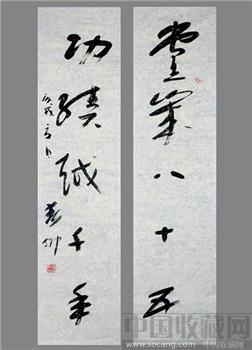 党業八十五
功績越千年
丙戌
中国收藏网
www.socang.com